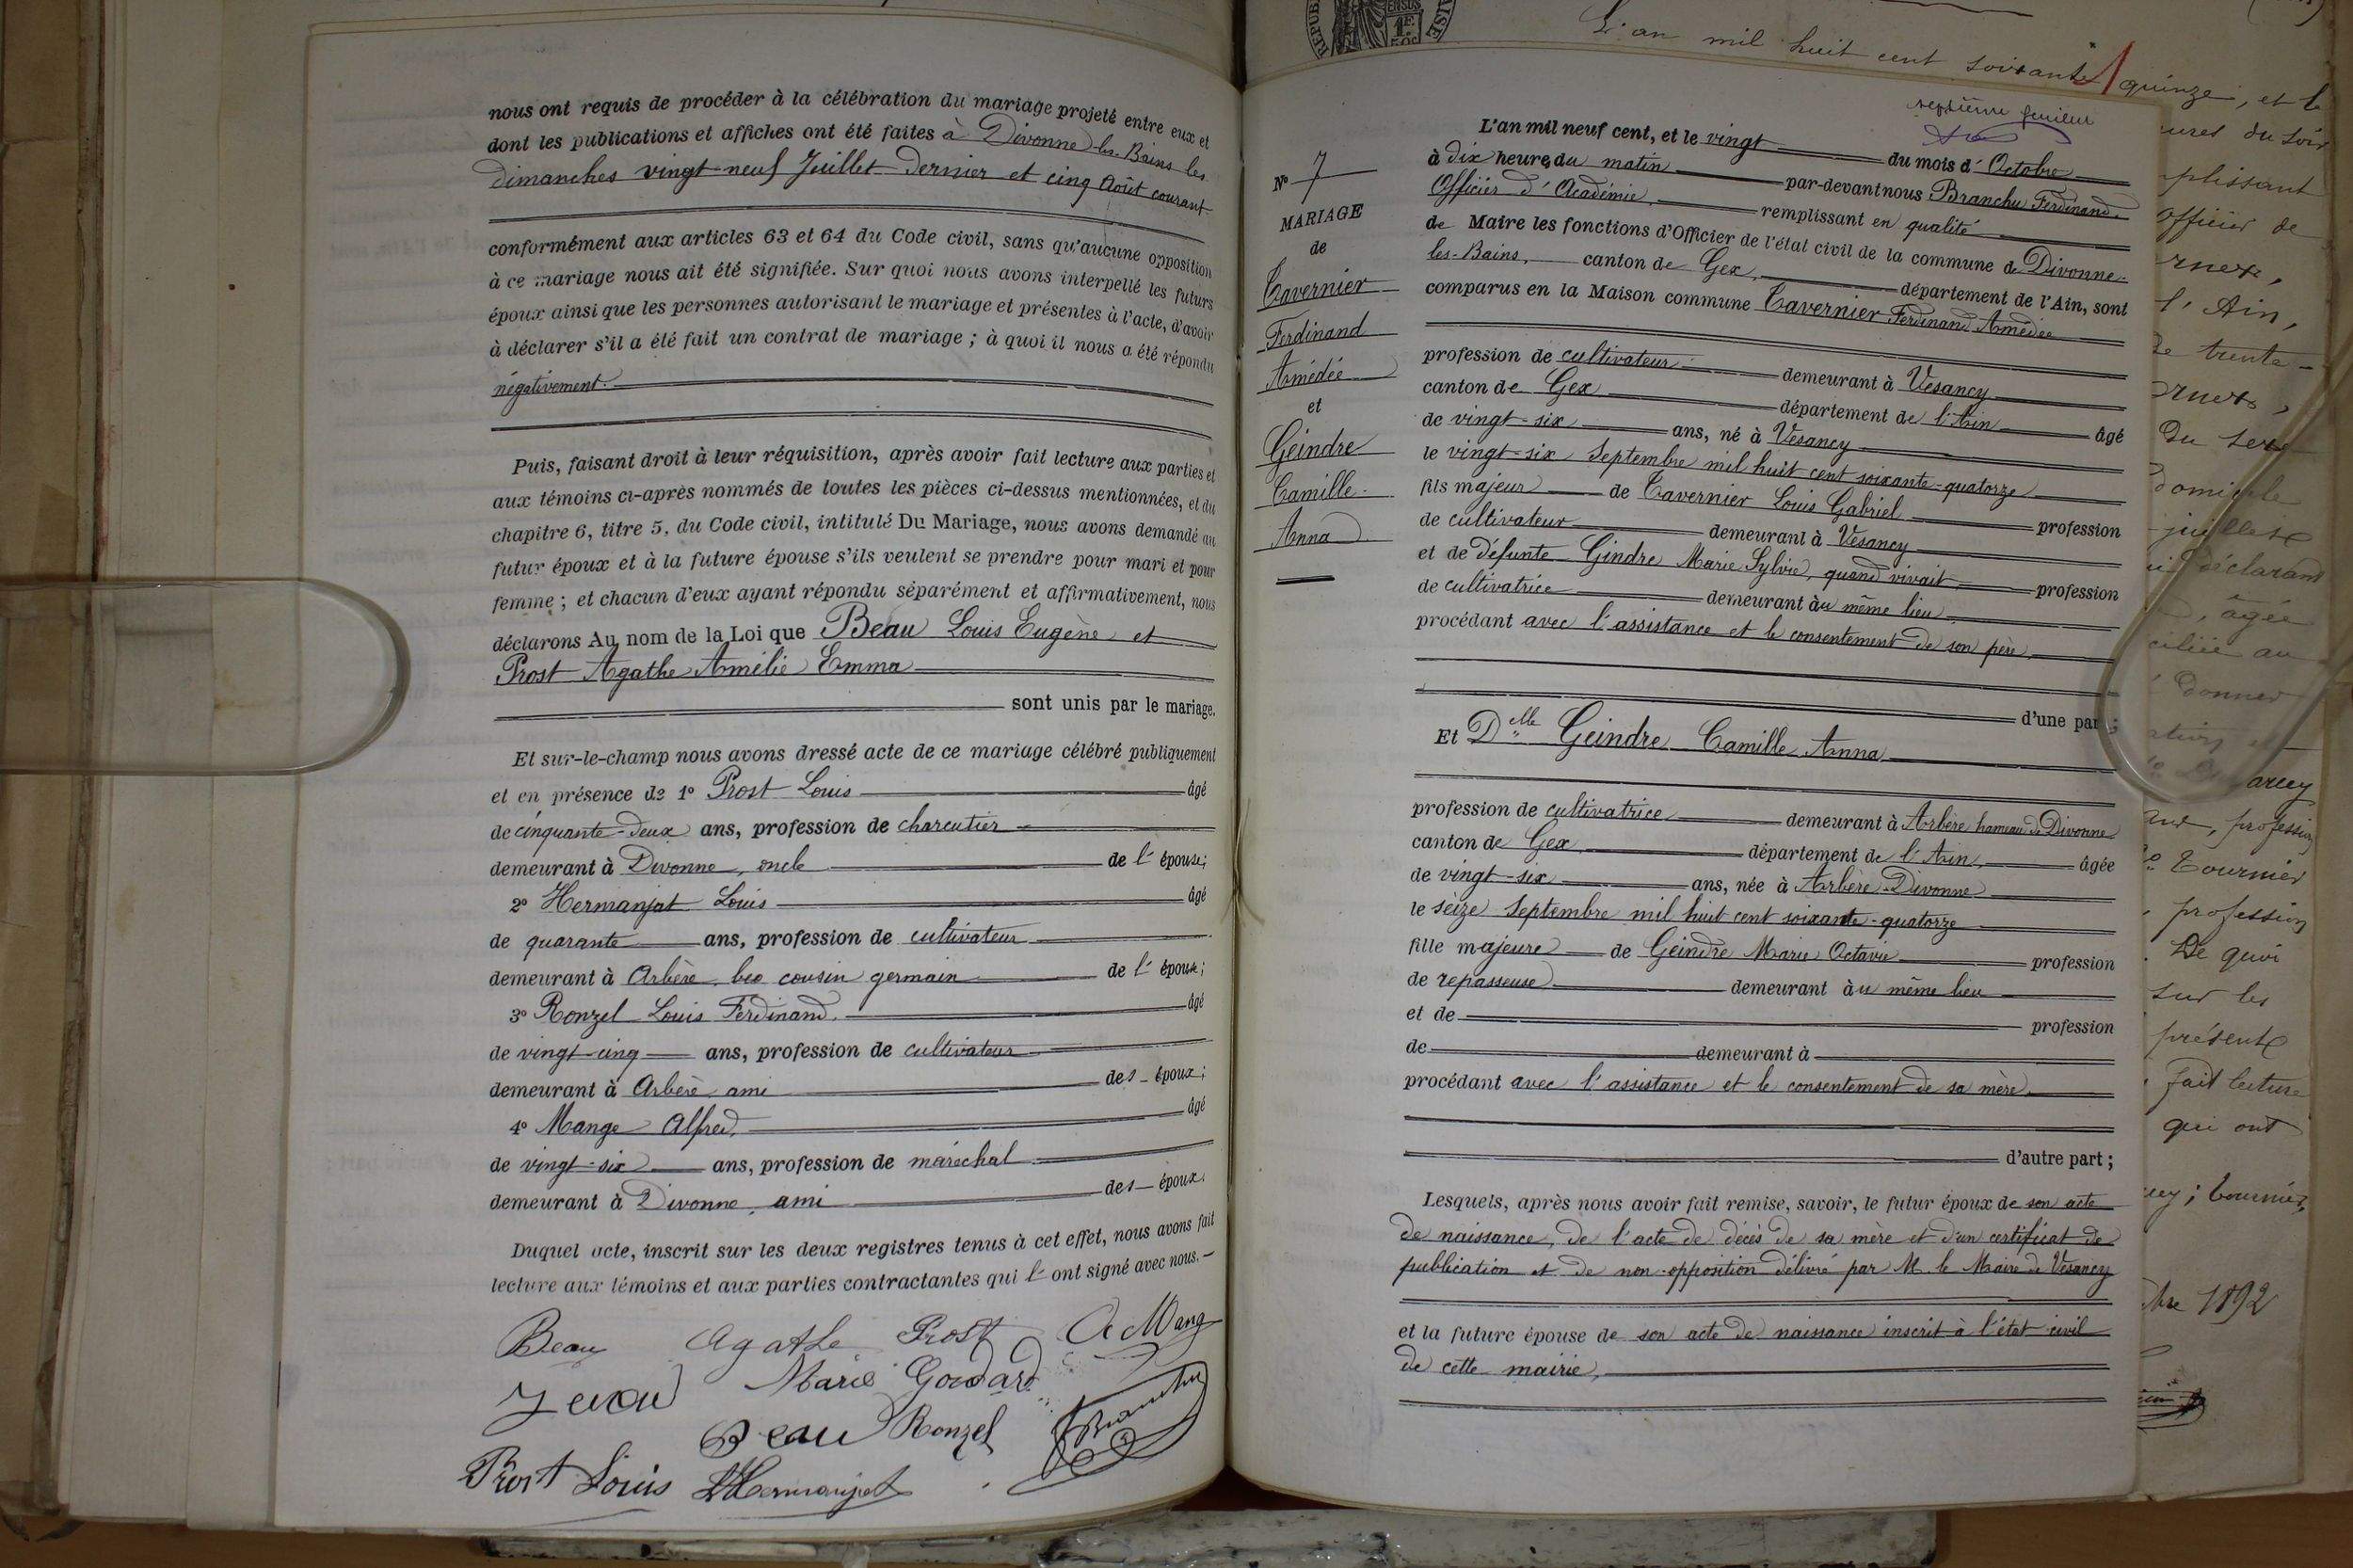 nous ont requis de procéder à la célébration du mariage projeté entre eux et
dont les publications et affiches ont été faites à Divonne-les-Bains les
dimanches vingt-neuf Juillet dernier et cinq Août courant
conformément aux articles 63 et 64 du Code civil, sans qu'aucune opposition
à ce mariage nous ait été signifiée. Sur quoi nous avons interpellé les futurs
époux ainsi que les personnes autorisant le mariage et présentes à l'acte, d'avoir
à déclarer s'il a été fait un contrat de mariage ; à quoi il nous a été répondu
négativement.
Puis, faisant droit à leur réquisition, après avoir fait lecture aux parties et
aux témoins ci-après nommés de toutes les pièces ci-dessus mentionnées, et du
chapitre 6, titre 5, du Code civil, intitulé Du Mariage, nous avons demandé au
futur époux et à la future épouse s'ils veulent se prendre pour mari et pour
femme ; et chacun d'eux ayant répondu séparément et affirmativement, nous
déclarons Au nom de la Loi que Beau Louis Eugène et
Prost Agathe Amélie Emma
sont unis par le mariage.
Et sur-le-champ nous avons dressé acte de ce mariage célébré publiquement
et en présence de 1° Prost Louis âgé
de cinquante-deux ans, profession de charcutier
demeurant à Divonne, oncle de l' épouse;
2° Hermanjat Louis âgé
de quarante ans, profession de cultivateur
demeurant à Arbère, beo cousin germain de l' épouse;
3° Ronzel Louis Ferdinand. âgé
de vingt-cinq ans, profession de cultivateur
demeurant à Arbère ami des époux;
4° Mange Alfred, âgé
de vingt-six ans, profession de maréchal
demeurant à Divonne, ami des époux.
Duquel acte, inscrit sur les deux registres tenus à cet effet, nous avons fait
lecture aux témoins et aux parties contractantes qui l' ont signé avec nous.
Beau Agathe Prost A Mang
Marie Godard
Beau Ronzel Branchu
Prost Louis L Hermanjat
L'an mil huit cent soixante quinze, et le
septième feuillet
N° 7
MARIAGE
de
Tavernier
Ferdinand
Amédée
et
Geindre
Camille
Anna
L'an mil neuf cent, et le vingt du mois d' Octobre
à dix heures du matin par-devant nous Branchu Ferdinand,
Officier d'Académie, remplissant en qualité
de Maire les fonctions d'Officier de l'état civil de la commune de Divonne-
les-Bains, canton de Gex, département de l'Ain, sont
comparus en la Maison commune Tavernier Ferdinand Amédée
profession de cultivateur demeurant à Vesancy
canton de Gex département de l'Ain âgé
de vingt-six ans, né à Vesancy
le vingt-six Septembre mil huit cent soixante-quatorze
fils majeur de Tavernier Louis Gabriel profession
de cultivateur demeurant à Vesancy
et de défunte Gindre Marie Sylvie, quand vivait profession
de cultivatrice demeurant àu même lieu
procédant avec l'assistance et le consentement de son père,
d'une part ;
Et Delle Geindre Camille Anna
profession de cultivatrice demeurant à Arbère hameau de Divonne
canton de Gex département de l'Ain, âgée
de vingt-six ans, née à Arbère-Divonne
le seize Septembre mil huit cent soixante-quatorze
fille majeure de Geindre Marie Octavie profession
de repasseuse demeurant àu même lieu
et de profession
de demeurant à
procédant avec l'assistance et le consentement de sa mère.
d'autre part ;
Lesquels, après nous avoir fait remise, savoir, le futur époux de son acte
de naissance, de l'acte de décès de sa mère et d'un certificat de
publication et de non-opposition délivré par M. le Maire de Vesancy
et la future épouse de son acte de naissance inscrit à l'état civil
de cette mairie,
du soir
plissant
Officier de
l'Ain,
de trente-
du sexe
domicile
juillet
déclarant
, âgée
au
donner
profession
Tournier
, profession
. De quoi
sur les
présente
fait lecture
qui ont
; Tournier,
1892